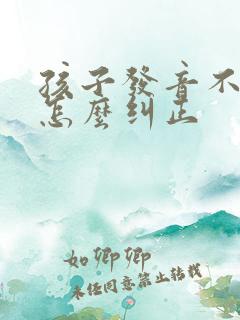 孩子發音不
怎麼糾正
如卿卿
未經同意禁止轉載